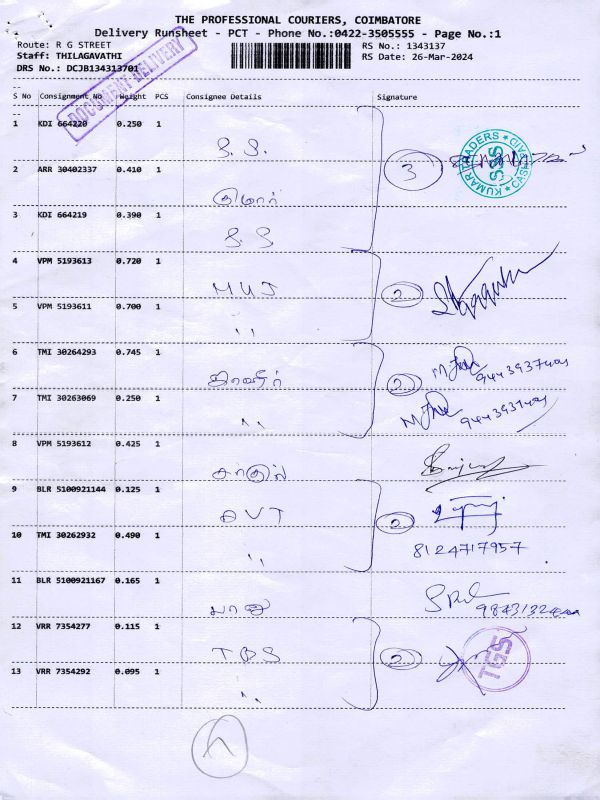 THE PROFESSIONAL COURIERS, COIMBATORE
Delivery Runsheet - PCT - Phone No.:0422-3505555 - Page No.:1
Route: R G STREET
Staff: THILAGAVATHI
DRS No.: DCJB134313701
RS No.: 1343137
RS Date: 26-Mar-2024
DOCUMENT DELIVERY
S No Consignment No Weight PCS Consignee Details Signature
1 KDI 664220 0.250 1 S. S.
2 ARR 30402337 0.410 1 குமார் 3
KUMAR TRADERS CASH PAID SSS
3 KDI 664219 0.390 1 S. S
4 VPM 5193613 0.720 1 MUJ 2
5 VPM 5193611 0.700 1 ,,
6 TMI 30264293 0.745 1 2
7 TMI 30263069 0.250 1 ,,
8 VPM 5193612 0.425 1
9 BLR 5100921144 0.125 1 AVT 2
10 TMI 30262932 0.490 1 ,, 8124717957
11 BLR 5100921167 0.165 1 பானு
12 VRR 7354277 0.115 1 TBS 2
TGS
13 VRR 7354292 0.095 1 ,,